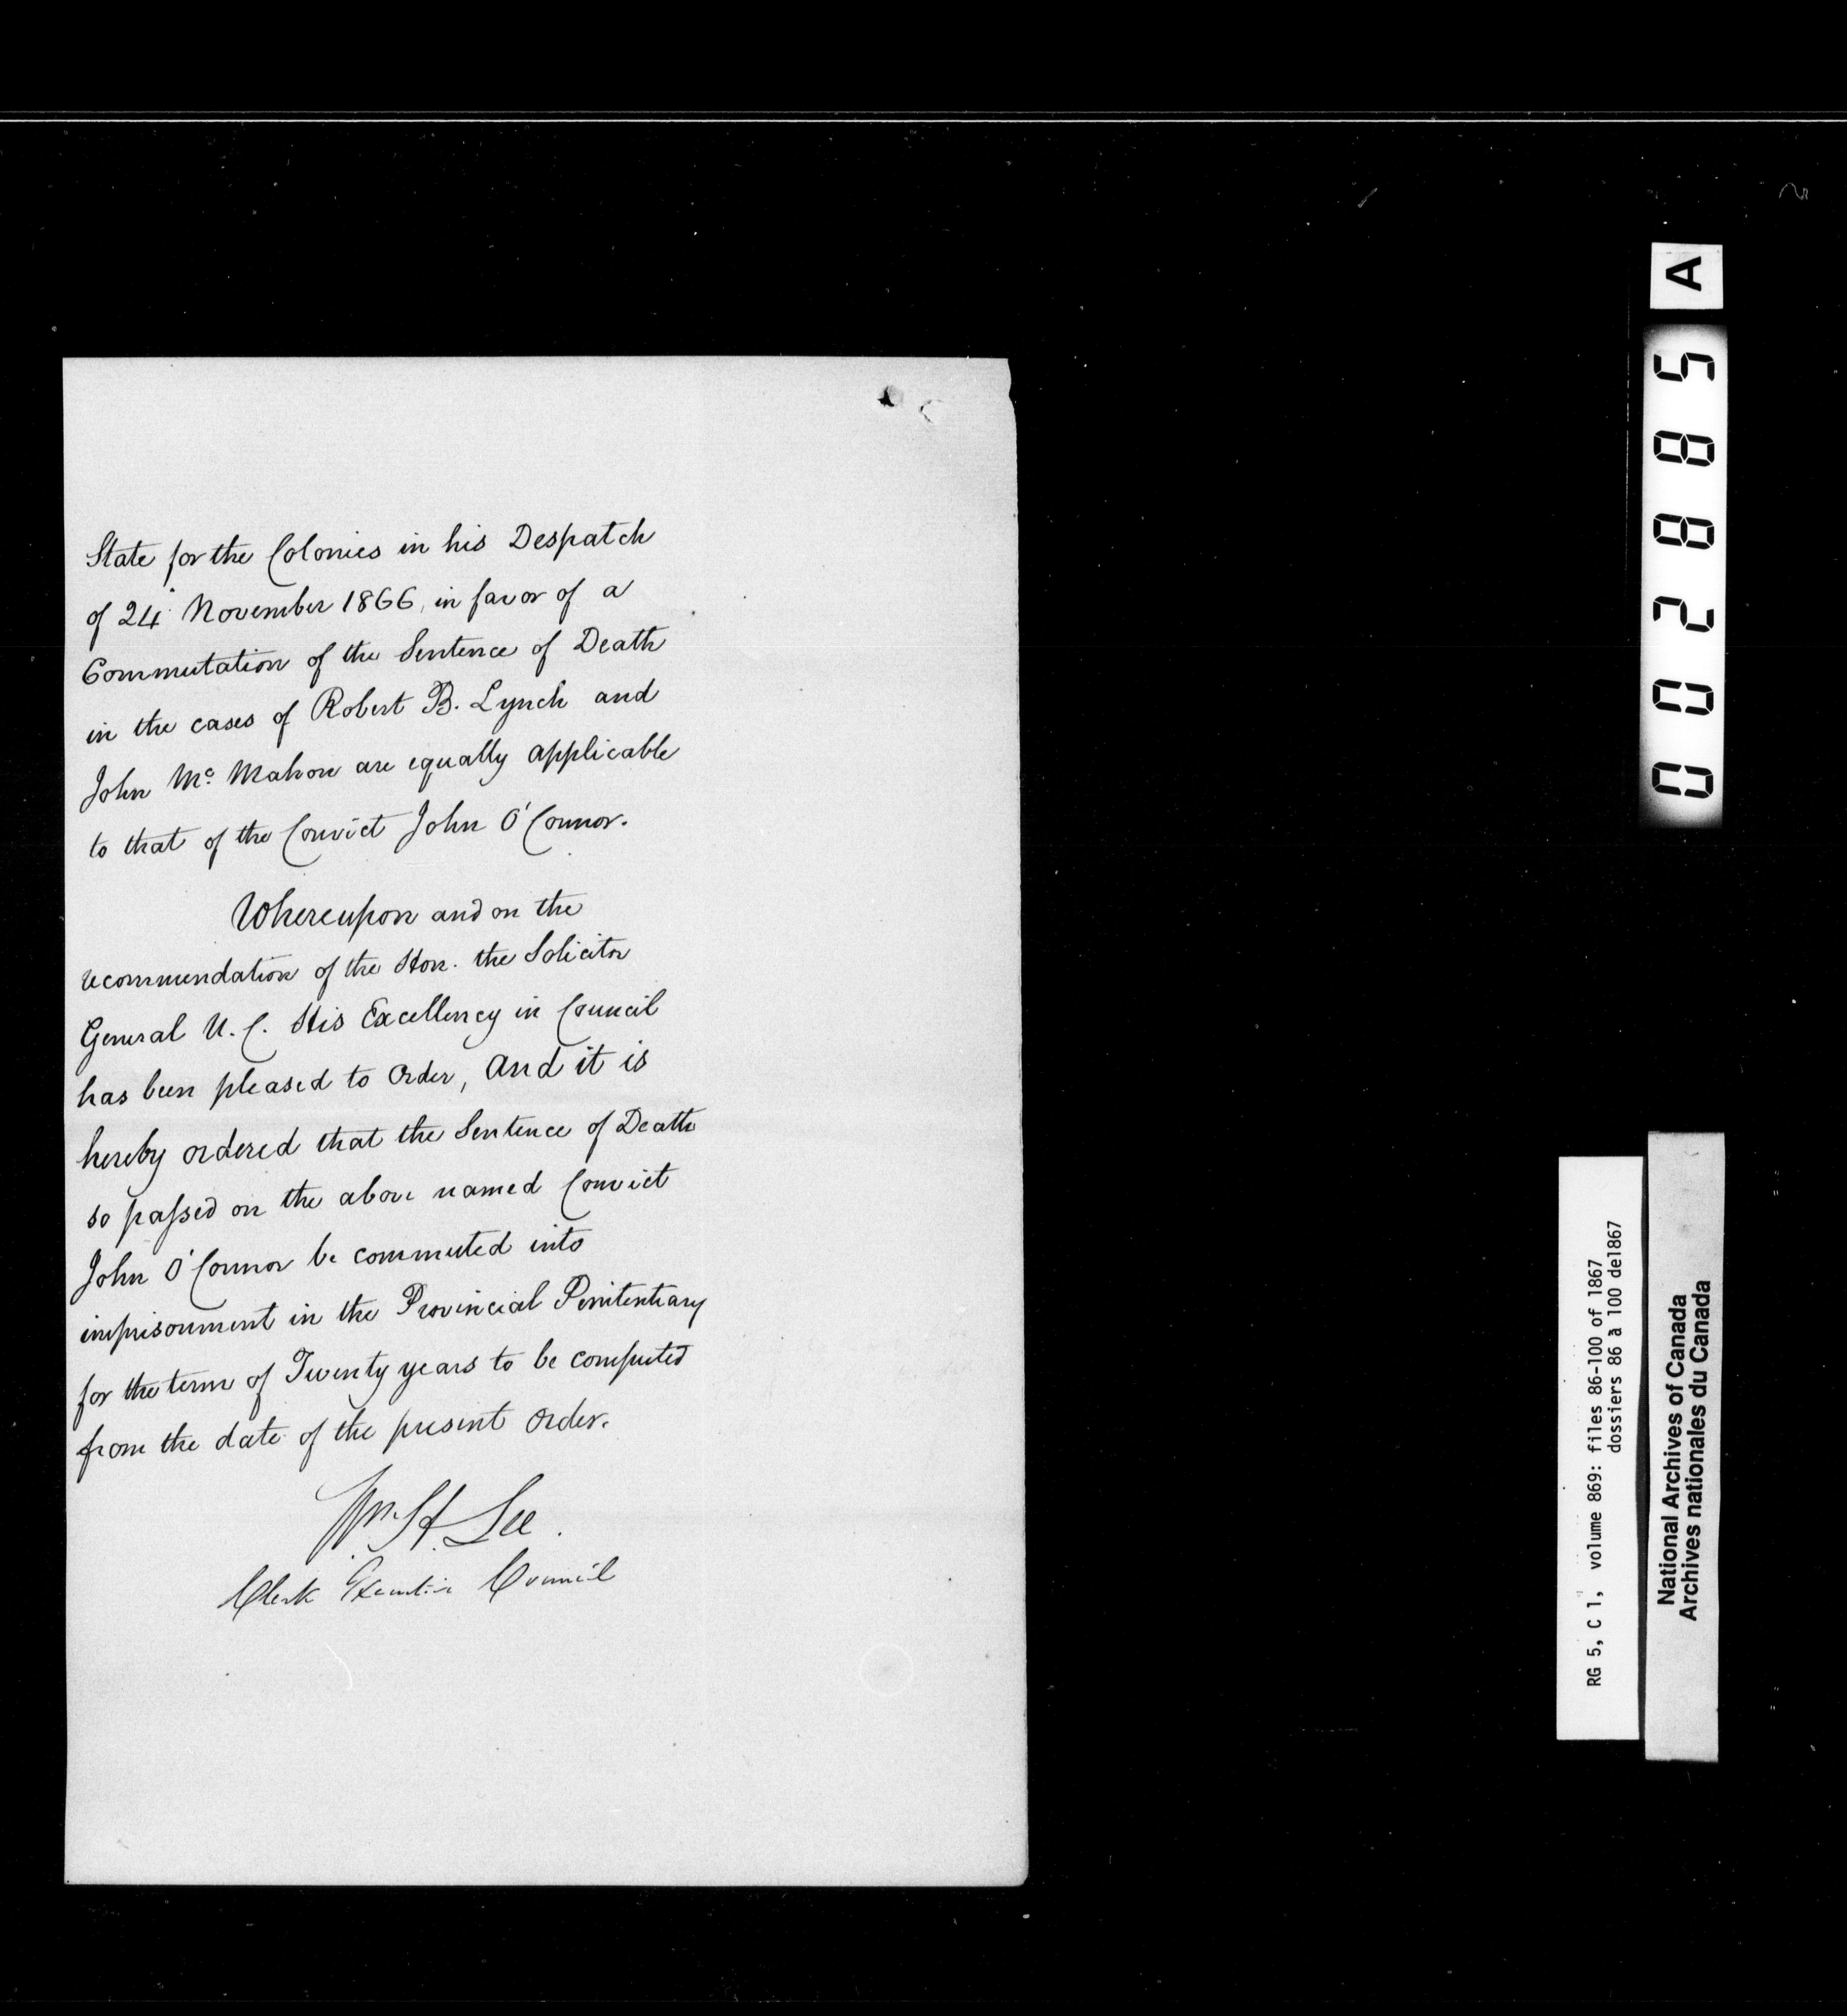 State for the Colonies in his Despatch
of 24 November 1866, in favor of a
Commutation of the Sentence of Death
in the cases of Robert B. Lynch and
John Mc Mahon are equally applicable
to that of the Convict John O'Connor.
Whereupon and on the
recommendation of the Hon. the Solicitor
General U.C. His Excellency in Council
has been pleased to Order, and it is
hereby ordered that the Sentence of Death
so passed on the above named Convict
John O'Connor be commuted into
imprisonment in the Provincial Penitentiary
for the term of Twenty years to be computed
from the date of the present Order.
Wm. H. Lee.
Clerk Executive Council
002885 A
RG 5, C 1, volume 869: files 86-100 of 1867
dossiers 86 à 100 de1867
National Archives of Canada
Archives nationales du Canada